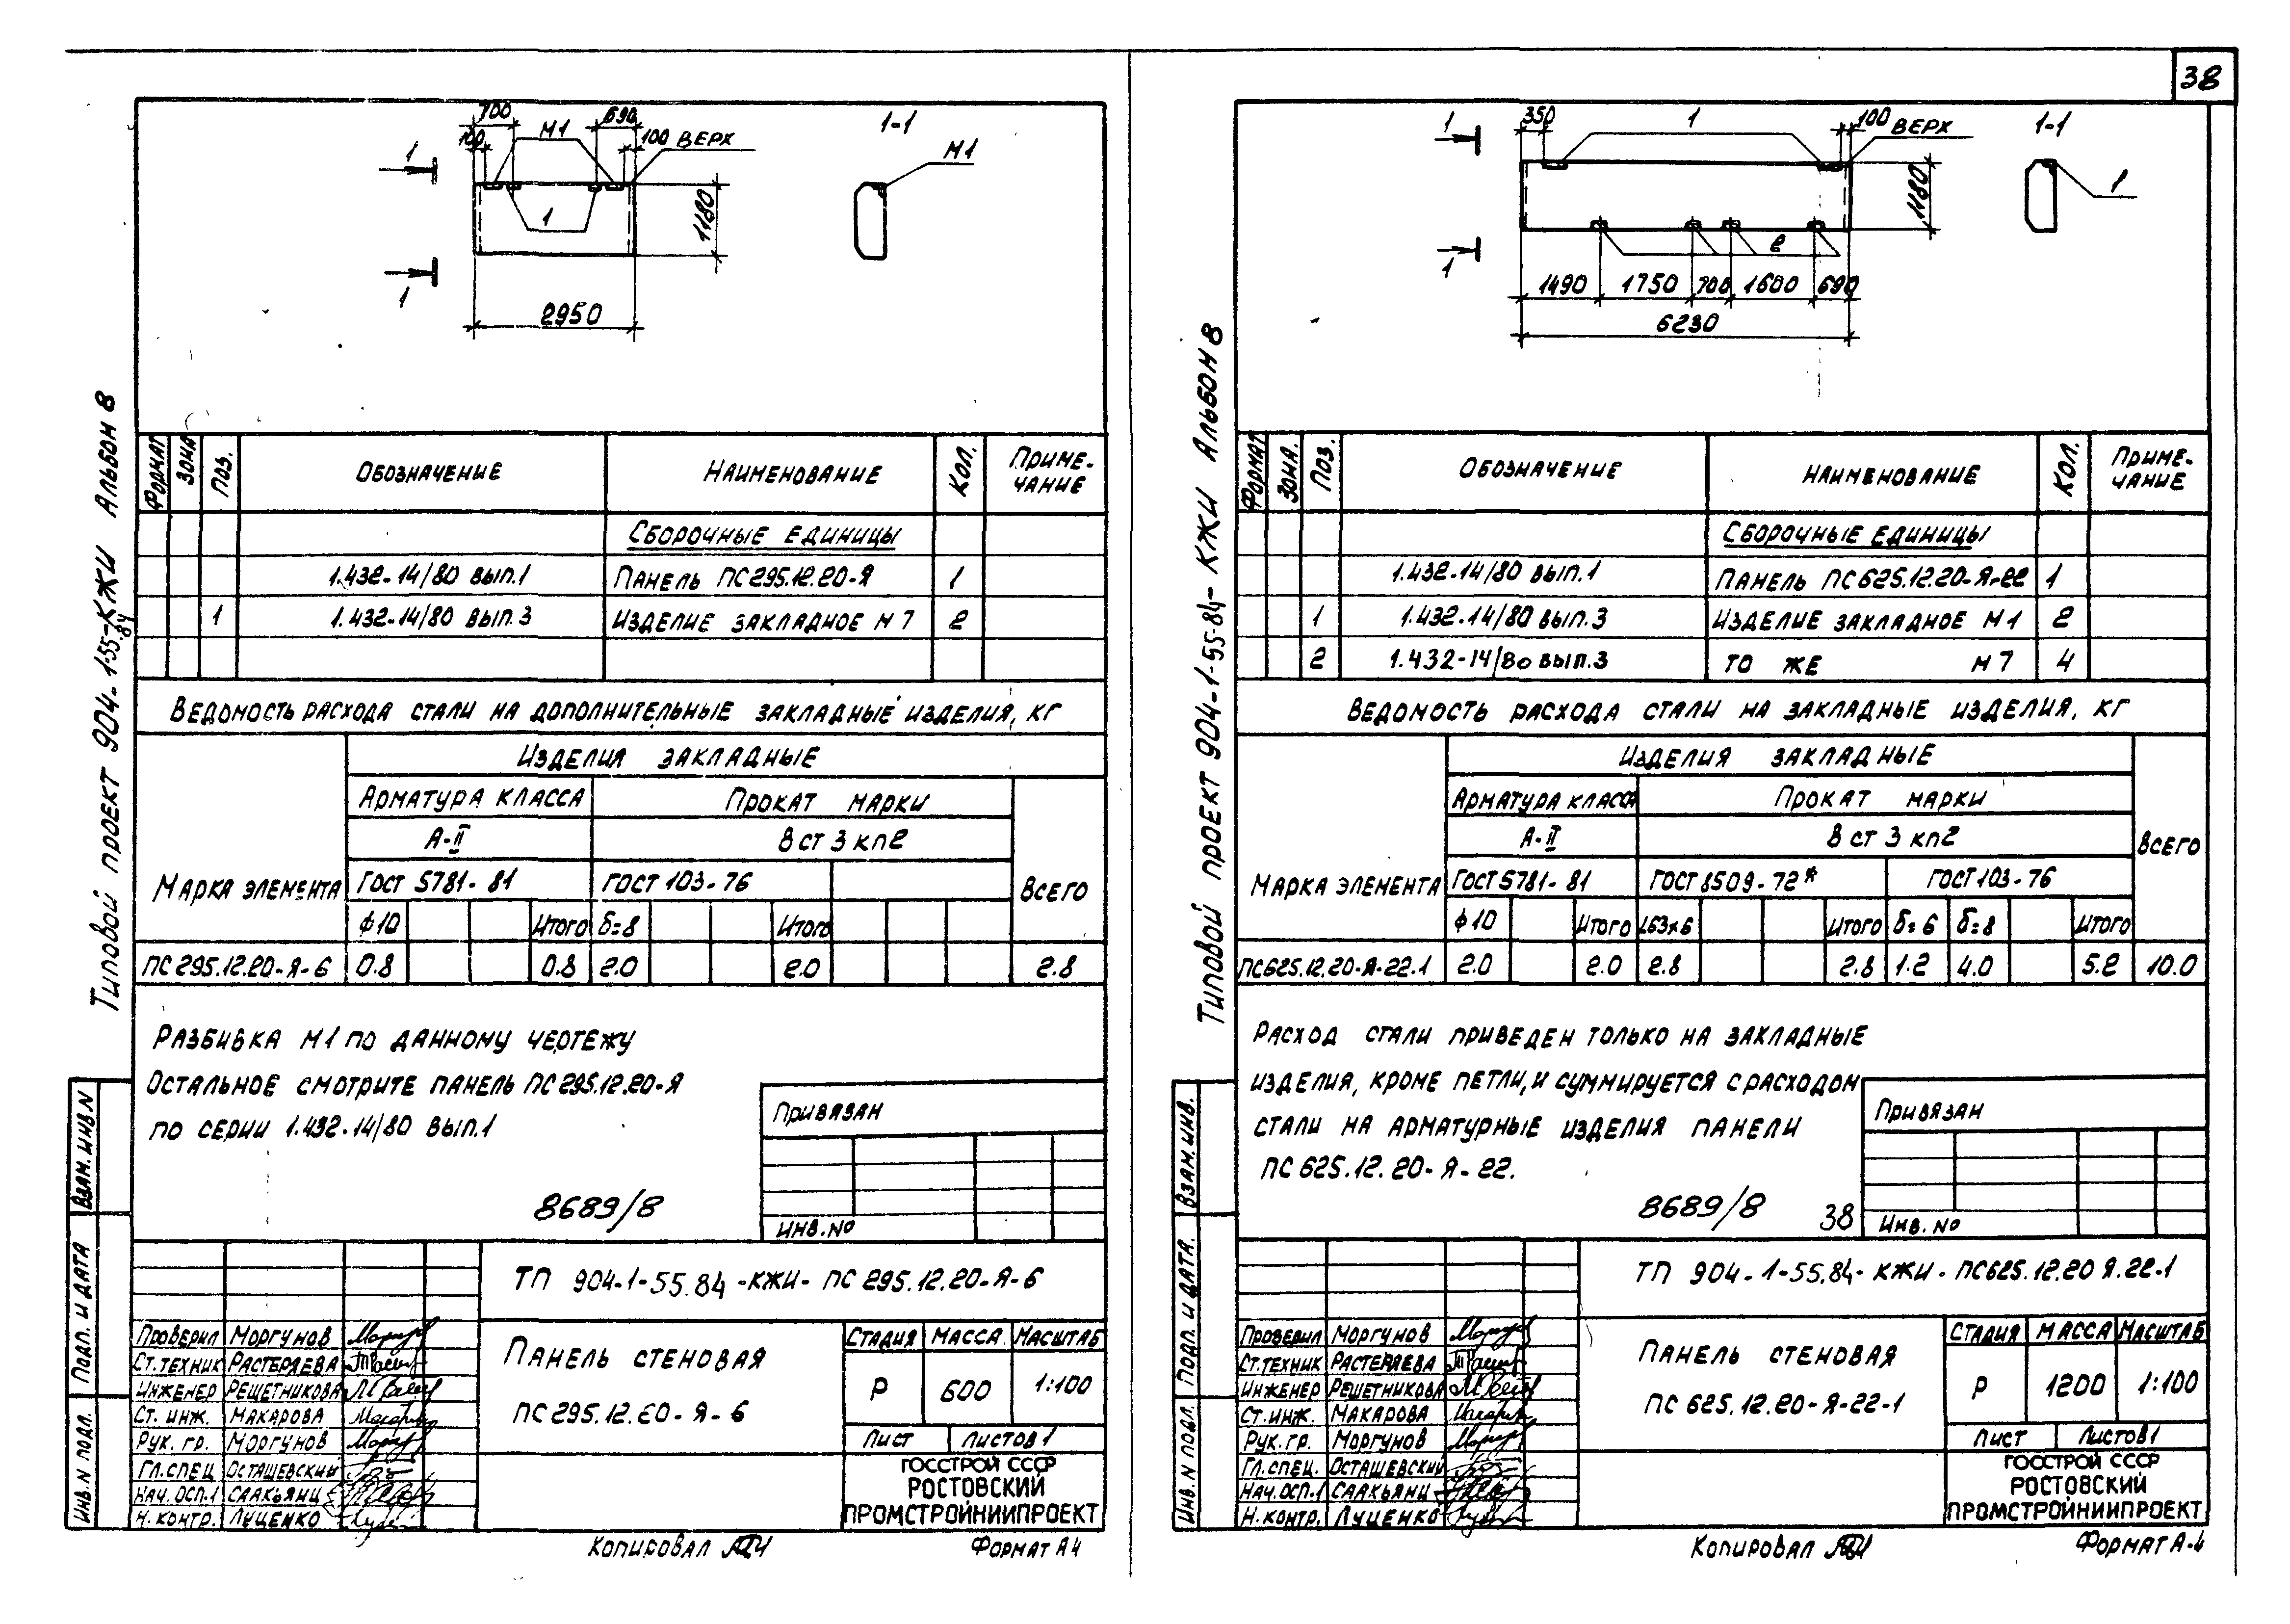 38
700
690
100
М1
100 ВЕРХ
1-1
М1
1
1
1
1180
2950
Формат
Зона
Поз.
Обозначение
Наименование
Кол.
Приме-
чание
Сборочные единицы
1.432-14/80 вып.1 Панель ПС295.12.20-Я 1
1 1.432-14/80 вып.3 Изделие закладное М7 2
Ведомость расхода стали на дополнительные закладные изделия, кг
Изделия закладные
Арматура класса Прокат марки
А-II В ст 3 кп2
Марка элемента ГОСТ 5781-81 ГОСТ 103-76 Всего
ф10 Итого б=8 Итого
ПС295.12.20-Я-6 0.8 0.8 2.0 2.0 2.8
Разбивка М1 по данному чертежу
Остальное смотрите панель ПС295.12.20-Я
по серии 1.432-14/80 вып.1
Привязан
8689/8
Инв.№
ТП 904-1-55.84-КЖИ-ПС295.12.20-Я-6
Проверил Моргунов
Ст.техник Растеряева
Инженер Решетникова
Ст. инж. Макарова
Рук. гр. Моргунов
Гл.спец Осташевский
Нач.ОСП-1 Саакьянц
Н.контр. Луценко
Панель стеновая
ПС295.12.20-Я-6
Стадия Масса Масштаб
Р 600 1:100
Лист Листов 1
ГОССТРОЙ СССР
РОСТОВСКИЙ
ПРОМСТРОЙНИИПРОЕКТ
Копировал
Формат А4
Типовой проект 904-1-55.84-КЖИ Альбом 8
Взам.инв N
Подп. и дата
Инв. N подл.
350
1
100 ВЕРХ
1-1
1
1
1
1180
2
1490 1750 700 1600 690
6230
Формат
Зона.
Поз.
Обозначение
Наименование
Кол.
Приме-
чание
Сборочные единицы
1.432-14/80 вып.1 Панель ПС625.12.20-Я-22 1
1 1.432-14/80 вып.3 Изделие закладное М1 2
2 1.432-14/80 вып.3 то же М7 4
Ведомость расхода стали на закладные изделия, кг
Изделия закладные
Арматура класса Прокат марки
А-II В ст 3 кп2
Всего
Марка элемента ГОСТ 5781-81 ГОСТ 8509-72* ГОСТ 103-76
ф10 Итого L63х6 Итого б=6 б=8 Итого
ПС625.12.20-Я-22.1 2.0 2.0 2.8 2.8 1.2 4.0 5.2 10.0
Расход стали приведен только на закладные
изделия, кроме петли, и суммируется с расходом
стали на арматурные изделия панели
ПС625.12.20-Я-22.
Привязан
8689/8 38
Инв.№
ТП 904-1-55.84-КЖИ-ПС625.12.20 Я.22-1
Проверил Моргунов
Ст.техник Растеряева
Инженер Решетникова
Ст.инж. Макарова
Рук.гр. Моргунов
Гл.спец. Осташевский
Нач.ОСП-1 Саакьянц
Н.контр. Луценко
Панель стеновая
ПС625.12.20-Я-22-1
Стадия Масса Масштаб
Р 1200 1:100
Лист Листов 1
ГОССТРОЙ СССР
РОСТОВСКИЙ
ПРОМСТРОЙНИИПРОЕКТ
Копировал
Формат А-4
Типовой проект 904-1-55-84-КЖИ Альбом 8
Взам.инв.
Подп. и дата.
Инв. N подл.